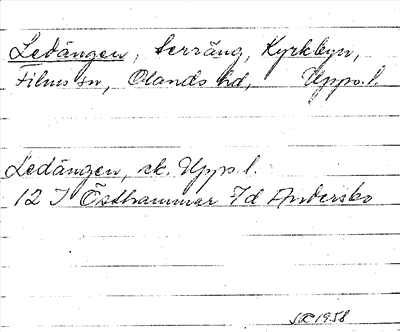 Ledängen, terräng, Kyrkbyn,
Films sn, Olands hd, Upps. l.
Ledängen, ek. Upps. l.
12 I Östhammar 7d Andersbo
1958